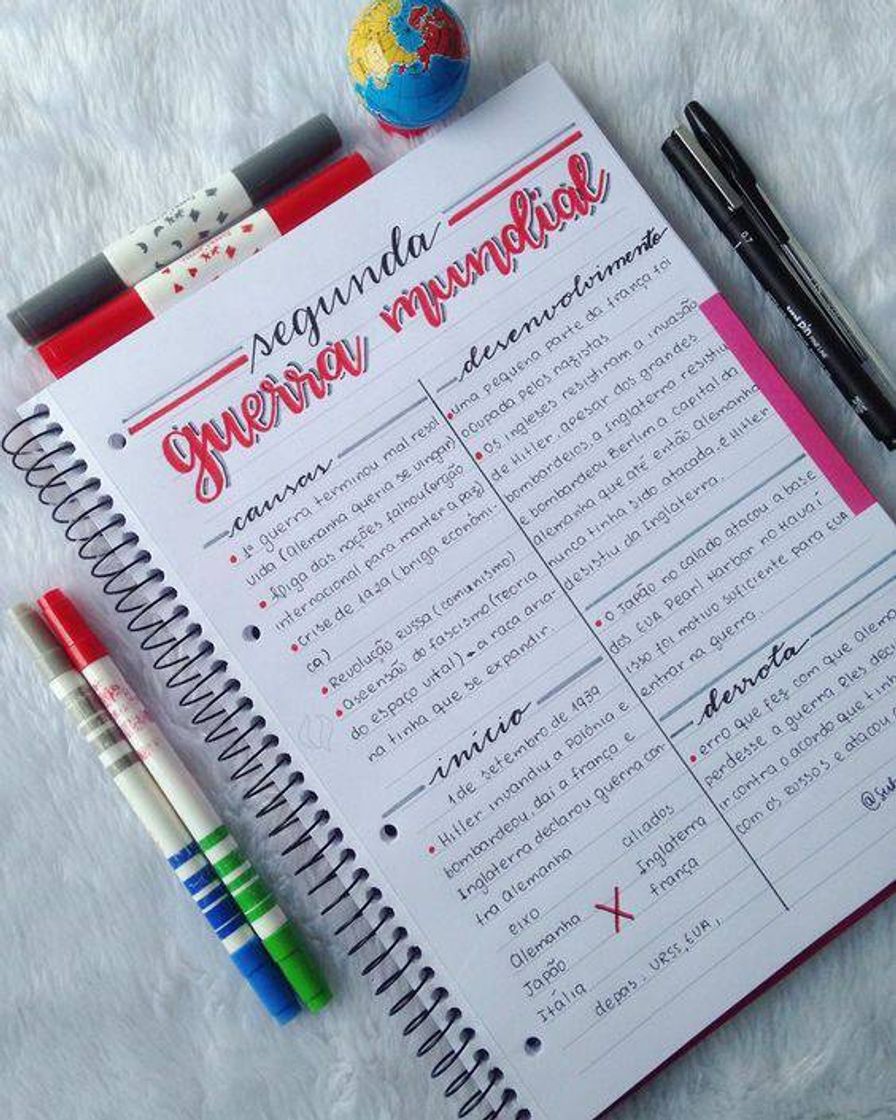 segunda
guerra mundial
causas
1ª guerra terminou mal resol
vida (Alemanha queria se vingar)
A liga das nações falhou (orgão
internacional para manter a paz)
crise de 1929 (briga econômi-
ca)
Revolução Russa (comunismo)
Ascensão do fascismo (Teoria
do espaço vital) → a raça aria-
na tinha que se expandir.
início
1 de setembro de 1939
Hitler invandiu a Polônia e
bombardeou, daí a frança e
Inglaterra declarou guerra con-
tra Alemanha
eixo aliados
Alemanha X Inglaterra
Japão frança
Itália
depas. URSS, EUA,
desenvolvimento
uma pequena parte da frança foi
ocupada pelos nazistas
Os ingleses resistiram a invasão
de Hitler, apesar dos grandes
bombardeios, a Inglaterra resistiu
e bombardeou Berlim a capital da
Alemanha que até então Alemanha
nunca tinha sido atacada. e Hitler
desistiu da Inglaterra.
O Japão no calado atacou a base
dos EUA Pearl Harbor no Havaí
isso foi motivo suficiente para EUA
entrar na guerra.
derrota
erro que fez com que Alem
perdesse a guerra Eles deci
ir contra o acordo que tinh
com os Russos e atacou
0.7
uni pin FINE LINE